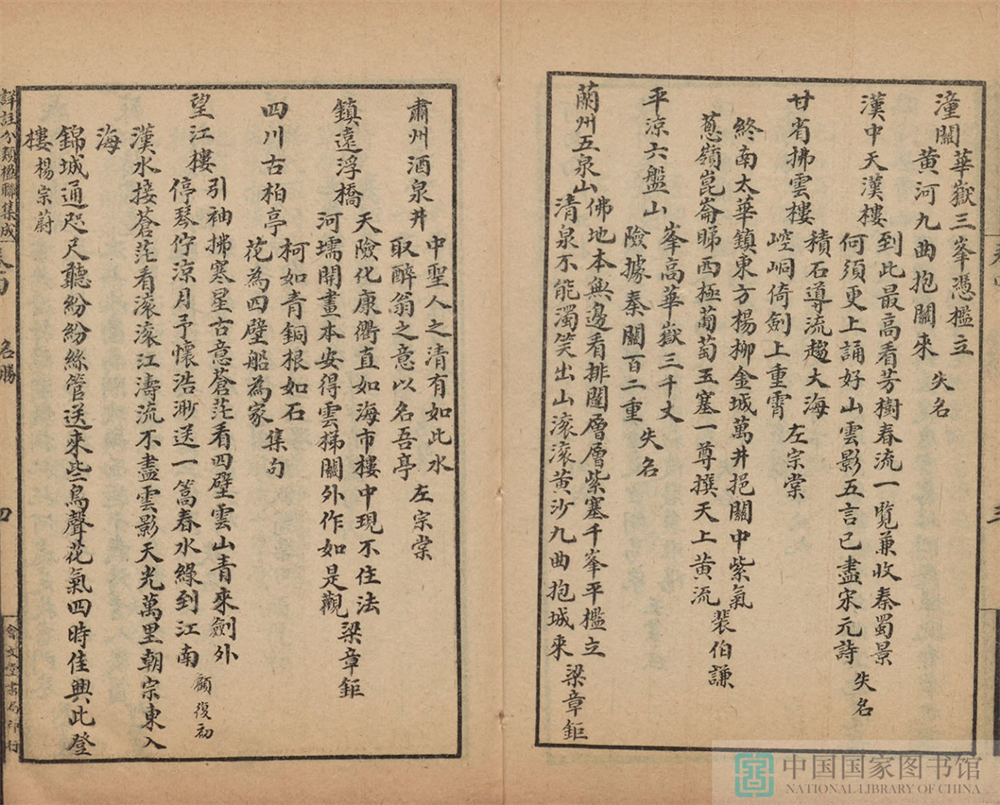 潼關
華嶽三峯憑檻立
黃河九曲抱關來
失名
漢中天漢樓
到此最高看芳樹春流一覽兼收秦蜀景
何須更上誦好山雲影五言已盡宋元詩
失名
甘省拂雲樓
積石導流趨大海
崆峒倚劍上重霄
左宗棠
終南太華鎮東方楊柳金城萬井挹關中紫氣
蔥嶺崑崙睇西極蔔萄玉塞一尊撰天上黃流
裴伯謙
平涼六盤山
峯高華嶽三千丈
險據秦關百二重
失名
蘭州五泉山
佛地本與邊看排闥層層紫塞千峯平檻立
清泉不能濁笑出山滾滾黃沙九曲抱城來
梁章鉅
肅州酒泉井
中聖人之清有如此水
取醉翁之意以名吾亭
左宗棠
鎮遠浮橋
天險化康衢直如海市樓中現不住法
河壖開畫本安得雲梯關外作如是觀
梁章鉅
四川古柏亭
柯如青銅根如石
花為四壁船為家
集句
望江樓
引袖拂寒星古意蒼茫看四壁雲山青來劍外
停琴佇涼月予懷浩渺送一篙春水綠到江南
顧復初
漢水接蒼茫看滾滾江濤流不盡雲影天光萬里朝宗東入
海
錦城通咫尺聽紛紛絲管送來些鳥聲花氣四時佳興此登
樓
楊宗蔚
詳註分類楹聯集成
名勝
四
會文堂書局印行
中国国家图书馆
NATIONAL LIBRARY OF CHINA